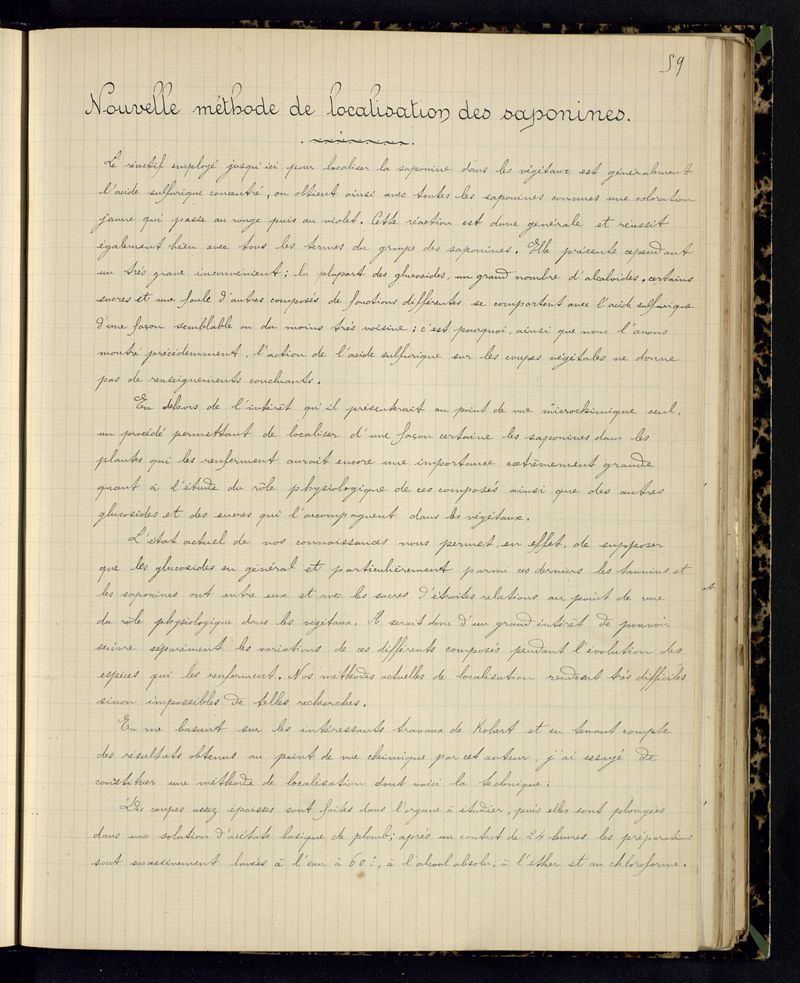 59
Nouvelle méthode de localisation des saponines.
Le réactif employé jusqu'ici pour localiser la saponine dans les végétaux est généralement
l'acide sulfurique concentré, on obtient ainsi avec toutes les saponines connues une coloration
jaune qui passe au rouge puis au violet. Cette réaction est donc générale et réussit
également bien avec tous les termes du groupe des saponines. Elle présente cependant
un très grave inconvenient: la plupart des glucosides, un grand nombre d'alcaloïdes, certains
sucres et une foule d'autres composés de fonctions différentes se comportent avec l'acide sulfurique
d'une façon semblable ou du moins très voisine; c'est pourquoi, ainsi que nous l'avons
montré précédemment, l'action de l'acide sulfurique sur les coupes végétales ne donne
pas de renseignements concluants.
En dehors de l'intérêt qu'il présenterait au point de vue microchimique seul,
un procédé permettant de localiser d'une façon certaine les saponines dans les
plantes qui les renferment aurait encore une importance extrêmement grande
quant à l'étude du rôle physiologique de ces composés ainsi que des autres
glucosides et des sucres qui l'accompagnent dans les végétaux.
L'état actuel de nos connaissances nous permet, en effet, de supposer
que les glucosides en général et particulièrement parmi ces derniers les tannins et
les saponines ont entre eux et avec les sucres d'étroites relations au point de vue
du rôle physiologique dans les végétaux. Il serait donc d'un grand intérêt de pouvoir
suivre séparément les variations de ces différents composés pendant l'évolution des
espèces qui les renferment. Nos méthodes actuelles de localisation rendent très difficiles
sinon impossibles de telles recherches.
En me basant sur les intéressants travaux de Kobert et en tenant compte
des résultats obtenus au point de vue chimique par cet auteur, j'ai essayé de
constituer une méthode de localisation dont voici la technique:
Des coupes assez épaisses sont faites dans l'organe à étudier, puis elles sont plongées
dans une solution d'acétate basique de plomb; après un contact de 24 heures les préparations
sont successivement lavées à l'eau à 60°, à l'alcool absolu, à l'éther et au chloroforme.